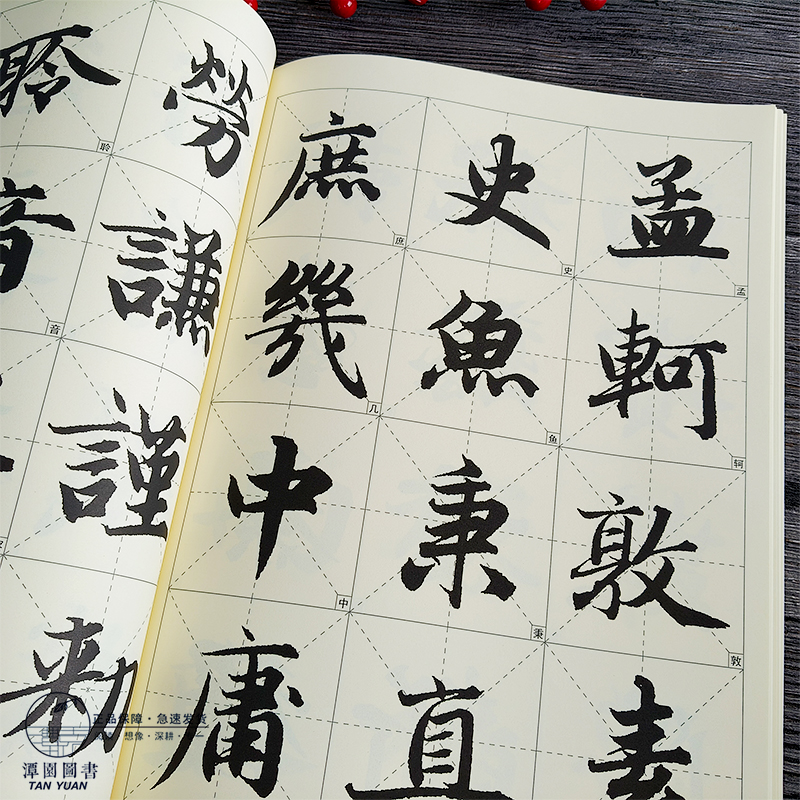 孟軻敦素
孟
轲
敦
史魚秉直
史
鱼
秉
庶幾中庸
庶
几
中
勞謙謹勑
聆音
聆
音
正品保障·急速发货
想像·深耕
潭園圖書
TAN YUAN